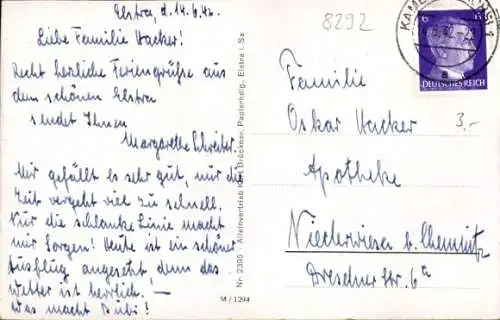 Elstra, d. 14.6.42.
Liebe Familie Hacker!
Recht herzliche Feriengrüsse aus
dem schönen Elstra
sendet Ihnen
Margarethe Schreiber.
Mir gefällt es sehr gut, nur die
Zeit vergeht viel zu schnell.
Nur die schlanke Linie macht
mir Sorgen! Heute ist ein schöner
Ausflug angesetzt, denn das
Wetter ist herrlich. —
Was macht Bubi?
Nr. 2390 - Alleinvertrieb Karl Brückner, Papierhdlg., Elstra i. Sa
M/1294
8292
KAMENZ
6
DEUTSCHES REICH
3,-
Familie
Oskar Hacker
Apotheke
Niederwiesa b. Chemnitz
Dresdner Str. 6a